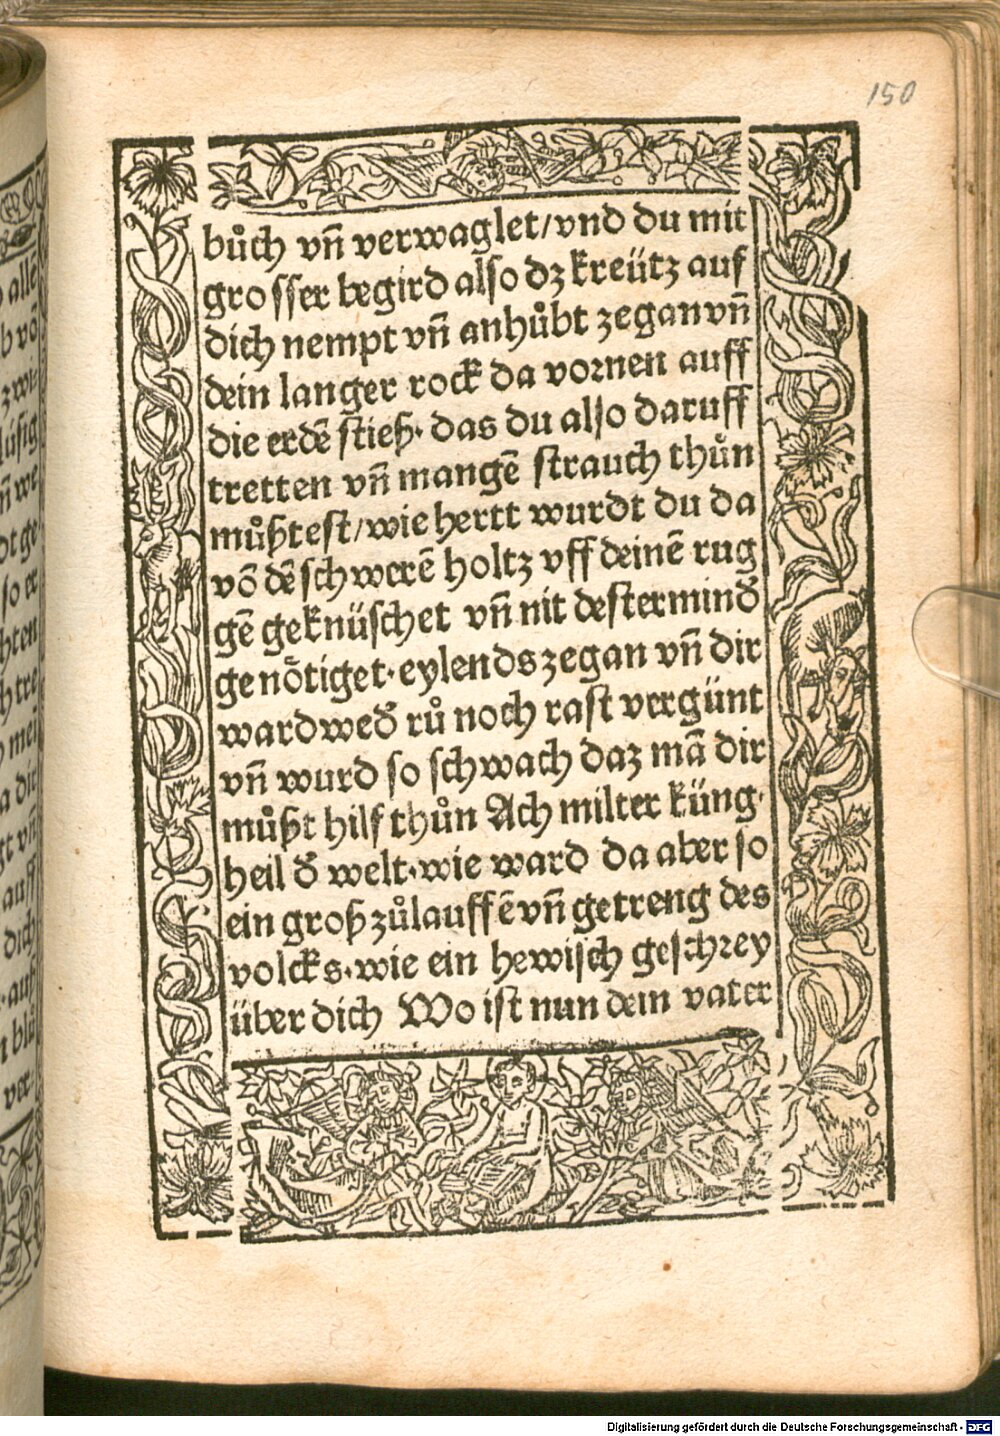 150
bůch vn̄ verwaglet/vnd du mit
grosser begird also dz kreütz auf
dich nempt vn̄ anhůbt zegan vn̄
dein langer rock da vornen auff
die erdē stieß· das du also daruff
tretten vn̄ mangē strauch thůn
můßtest/wie hertt wurdt du da
vō dē schwerē holtz vff deinē rug
gē geknüschet vn̄ nit destermind̄
genötiget· eylends zegan vn̄ dir
ward wed̄ rů noch rast vergünt
vn̄ wurd so schwach daz mā dir
můßt hilf thůn Ach milter küng·
heil d̄ welt· wie ward da aber so
ein groß zůlauffē vn̄ getreng des
volcks· wie ein hewisch geschrey
über dich Wo ist nun dein vater
allē
b vō
zwi
lüsig
n̄ we
dt ge
so er
hten
h tre
mei
a dir
gt vn̄
auff
dich
auß
n blů
ver
Digitalisierung gefördert durch die Deutsche Forschungsgemeinschaft - DFG